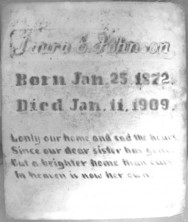 Laura E. Johnson
Born Jan. 25. 1872.
Died Jan. 11. 1909.
Lonly our home and sad the heart
Since our dear sister has gone
But a brighter home than ours
In heaven is now her own